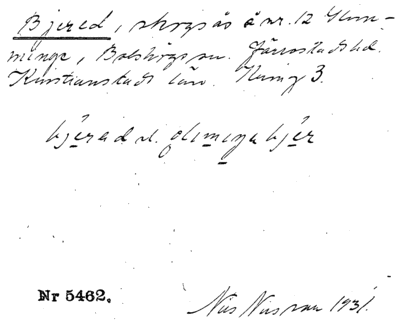 Bjered, skogsås å nr. 12 Glim-
minge, Bolshögs sn. Järrestads hd.
Kristianstads län. Ring 3.
bjerad el. gliminga bjer
Nr 5462.
Nils Nilsson 1931.